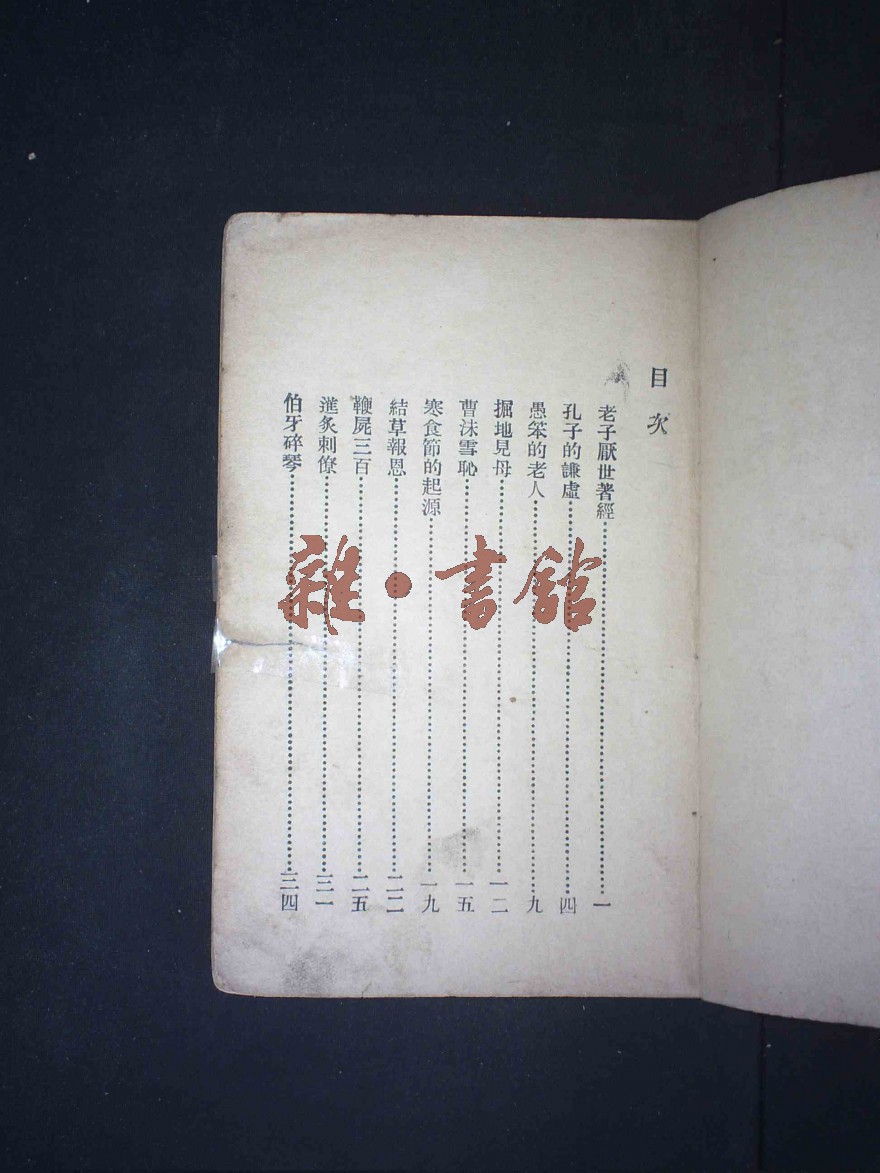 目次
老子厭世著經……一
孔子的謙虛……四
愚笨的老人……九
掘地見母……一二
曹沬雪恥……一五
寒食節的起源……一九
結草報恩……二二
鞭屍三百……二五
進炙刺僚……三一
伯牙碎琴……三四
雜·書館